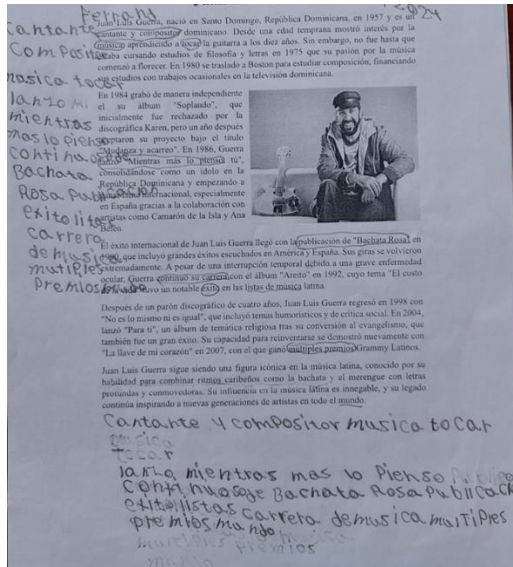 Ferrani
2024
Juan Luis Guerra, nació en Santo Domingo, República Dominicana, en 1957 y es un
cantante y compositor dominicano. Desde una edad temprana mostró interés por la
música aprendiendo a tocar la guitarra a los diez años. Sin embargo, no fue hasta que
estaba cursando estudios de filosofía y letras en 1975 que su pasión por la música
comenzó a florecer. En 1980 se trasladó a Boston para estudiar composición, financiando
sus estudios con trabajos ocasionales en la televisión dominicana.
En 1984 grabó de manera independiente
el su álbum "Soplando", que
inicialmente fue rechazado por la
discográfica Karen, pero un año después
aceptaron su proyecto bajo el título
"Mudanza y acarreo". En 1986, Guerra
"Mientras más lo pienso tú",
consolidándose como un ídolo en la
República Dominicana y empezando a
internacional, especialmente
en España gracias a la colaboración con
artistas como Camarón de la Isla y Ana
Belén.
El éxito internacional de Juan Luis Guerra llegó con la publicación de "Bachata Rosa", en
que incluyó grandes éxitos escuchados en América y España. Sus giras se volvieron
extremadamente. A pesar de una interrupción temporal debido a una grave enfermedad
ocular, Guerra continuó su carrera con el álbum "Areíto" en 1992, cuyo tema "El costo
tuvo un notable éxito en las listas de música latina.
Después de un parón discográfico de cuatro años, Juan Luis Guerra regresó en 1998 con
"No es lo mismo ni es igual", que incluyó temas humorísticos y de crítica social. En 2004,
lanzó "Para ti", un álbum de temática religiosa tras su conversión al evangelismo, que
también fue un gran éxito. Su capacidad para reinventarse se demostró nuevamente con
"La llave de mi corazón" en 2007, con el que ganó múltiples premios Grammy Latinos.
Juan Luis Guerra sigue siendo una figura icónica en la música latina, conocido por su
habilidad para combinar ritmos caribeños como la bachata y el merengue con letras
profundas y conmovedoras. Su influencia en la música latina es innegable, y su legado
continúa inspirando a nuevas generaciones de artistas en todo el mundo.
Cantante
Compositor
musica tocar
lanzo mi
mientras
mas lo Pienso
continuosde
Bachata
Rosa Publicacion
exitolitos
carrera
de musica
mutiples
Premios mundo
Cantante y compositor musica tocar
musica
tocar
lanzo mientras mas lo Pienso Publico
continuosde Bachata Rosa Publicac
exitollistas carrera demusica multiples
premios mundo
multiples premios
mundo